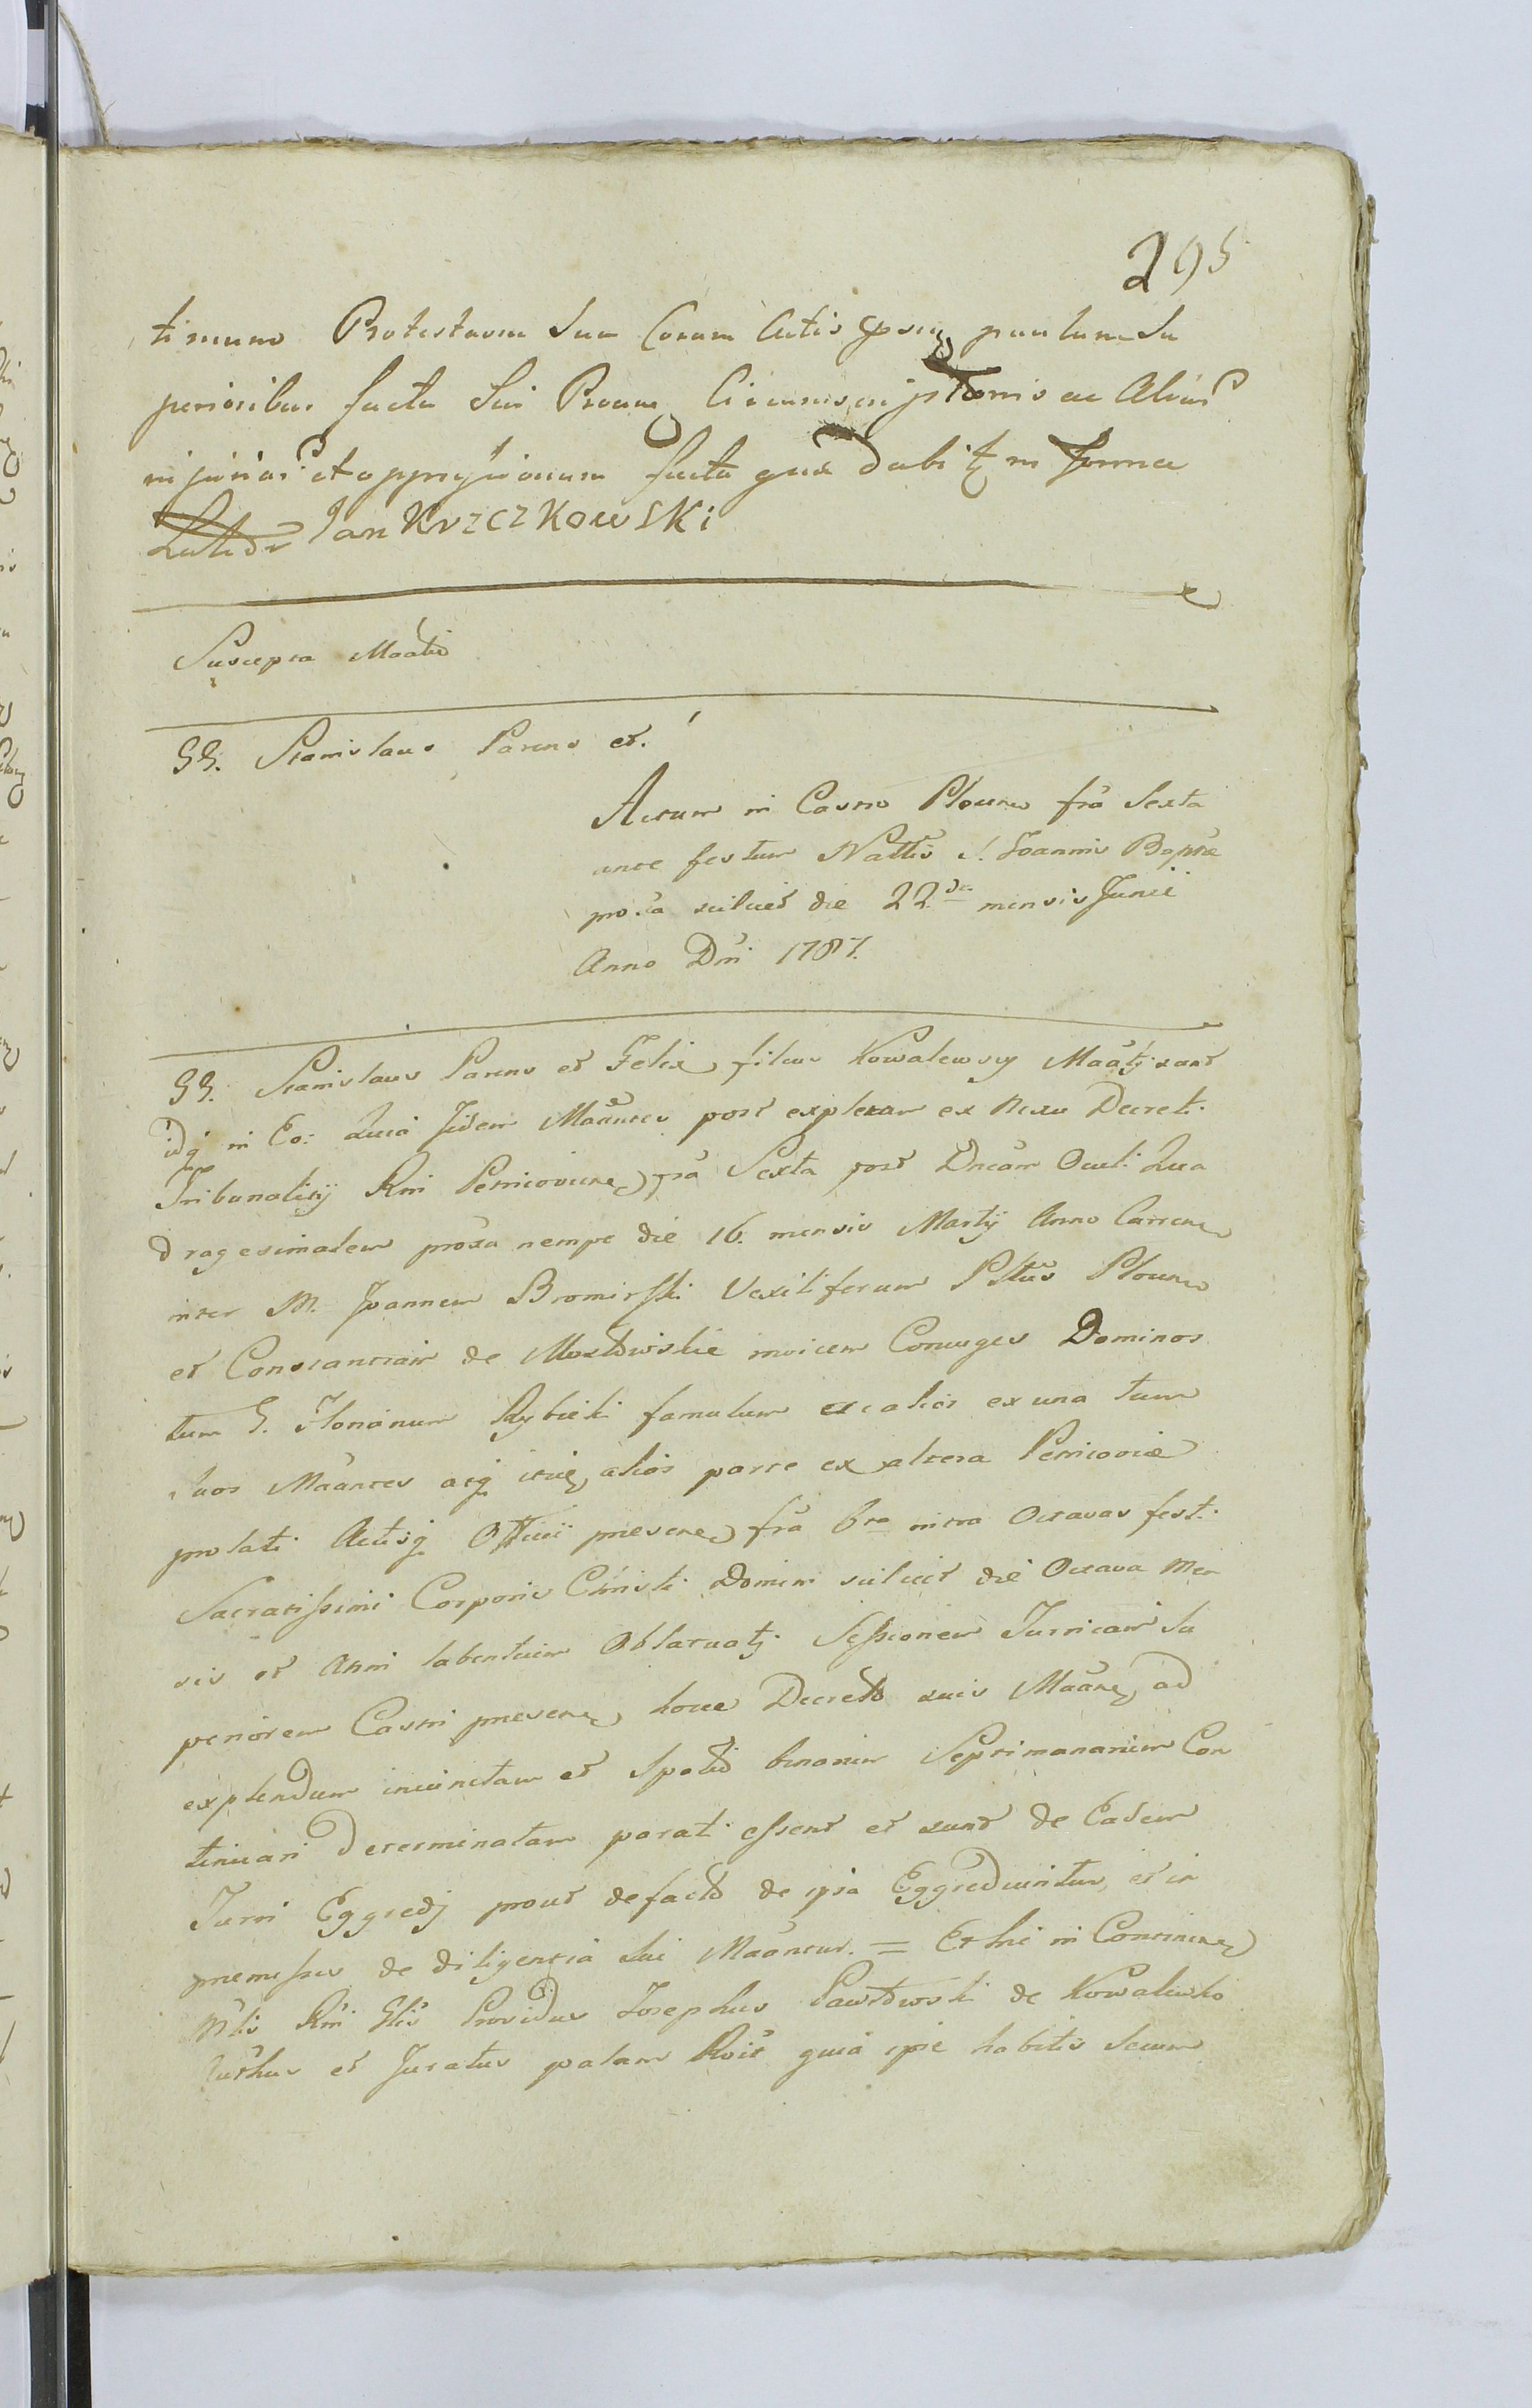 295
timuno Protestaom Sua Coram Actis psni paulum Su
perioribus facta Sui Circumscriptionis ac Aliar
injuriar et oppressionum facta quae dabitr in forma
Jan Krzczkowski
Suscepta Maatio
GG. Stanislaus Parens et.
Actum in Castro Plocen fra Sexta
ante festum Nattis S. Joannis Baptae
proxa scilicet die 22da mensis Junii
Anno Dni 1787.
GG. Stanislaus Parens et Felix filius Kowalewscy Maatj sunt
idq in Eo: Quia Jidem Maantes post expletam ex Nexu Decreti
Tribunalitij Rni Petricovien fra Sexta post Dncam Oculi Qua
dragesimalem proxa nempe die 16. mensis Martij Anno Curren
inter M. Joannem Bromirski Vexiliferum Pttus Plocen
et Constantiam de Mostowskie invicem Conuges Dominos
tum G. Florianum Rybicki famulum et alios ex una tum
suos Maantes atq alios parte ex altera Petricoviae
prolati Actisq Officii presen fra 6ta intra Octavas festi
Sacratissimi Corporis Christi Domini scilicet die Octava Men
sis et Anni labentium Oblatuatj Sessionem Turricam Su
periorem Castri presen hocce Decreto suis Maan ad
explendum iniunctam et Spatio binarum Septimanarum Con
tinuari Determinatam parati essent et sunt de Eadem
Turri Eggredj prout defacto de ipsa Eggrediuntur, et in
premissis de diligentia Sui Maantur. = Et hic in Continen
Mtlis Rni Glis Providus Josephus Pawłowski de Kowalewko
Authus et Juratus palam Rcit quia ipse habitis Secum